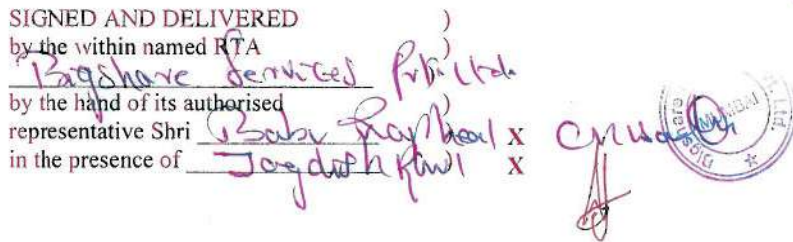 SIGNED AND DELIVERED )
by the within named RTA )
Bigshare Services Pvt. Ltd.
by the hand of its authorised )
representative Shri Babu Raphael X
in the presence of Jagdish X
MUMBAI